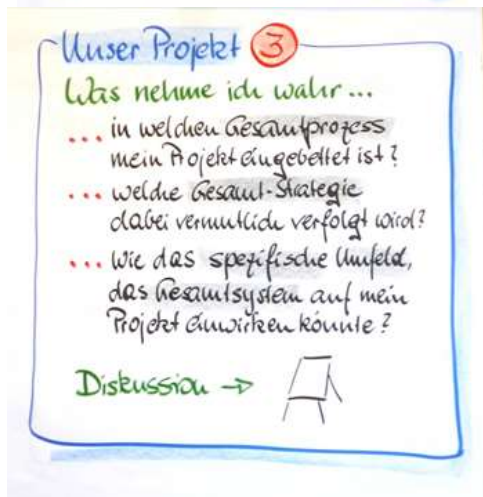 Unser Projekt 3
Was nehme ich wahr...
... in welchen Gesamtprozess
mein Projekt eingebettet ist?
... welche Gesamt-Strategie
dabei vermutlich verfolgt wird?
... Wie das spezifische Umfeld,
das Gesamtsystem auf mein
Projekt einwirken könnte?
Diskussion →